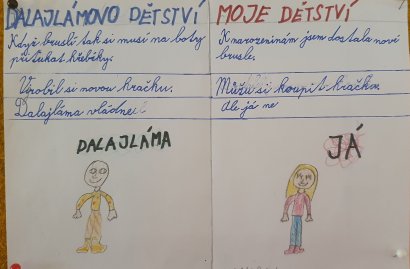 DALAJLÁMOVO DĚTSTVÍ
Když bruslí tak si musí na boty
přiťukat hřebíky.
Vyrobil si novou hračku.
Dalajláma vládne
DALAJLÁMA
MOJE DĚTSTVÍ
K narozeninám jsem dostala nové
brusle.
Můžu si koupit hračku.
Ale já ne
JÁ